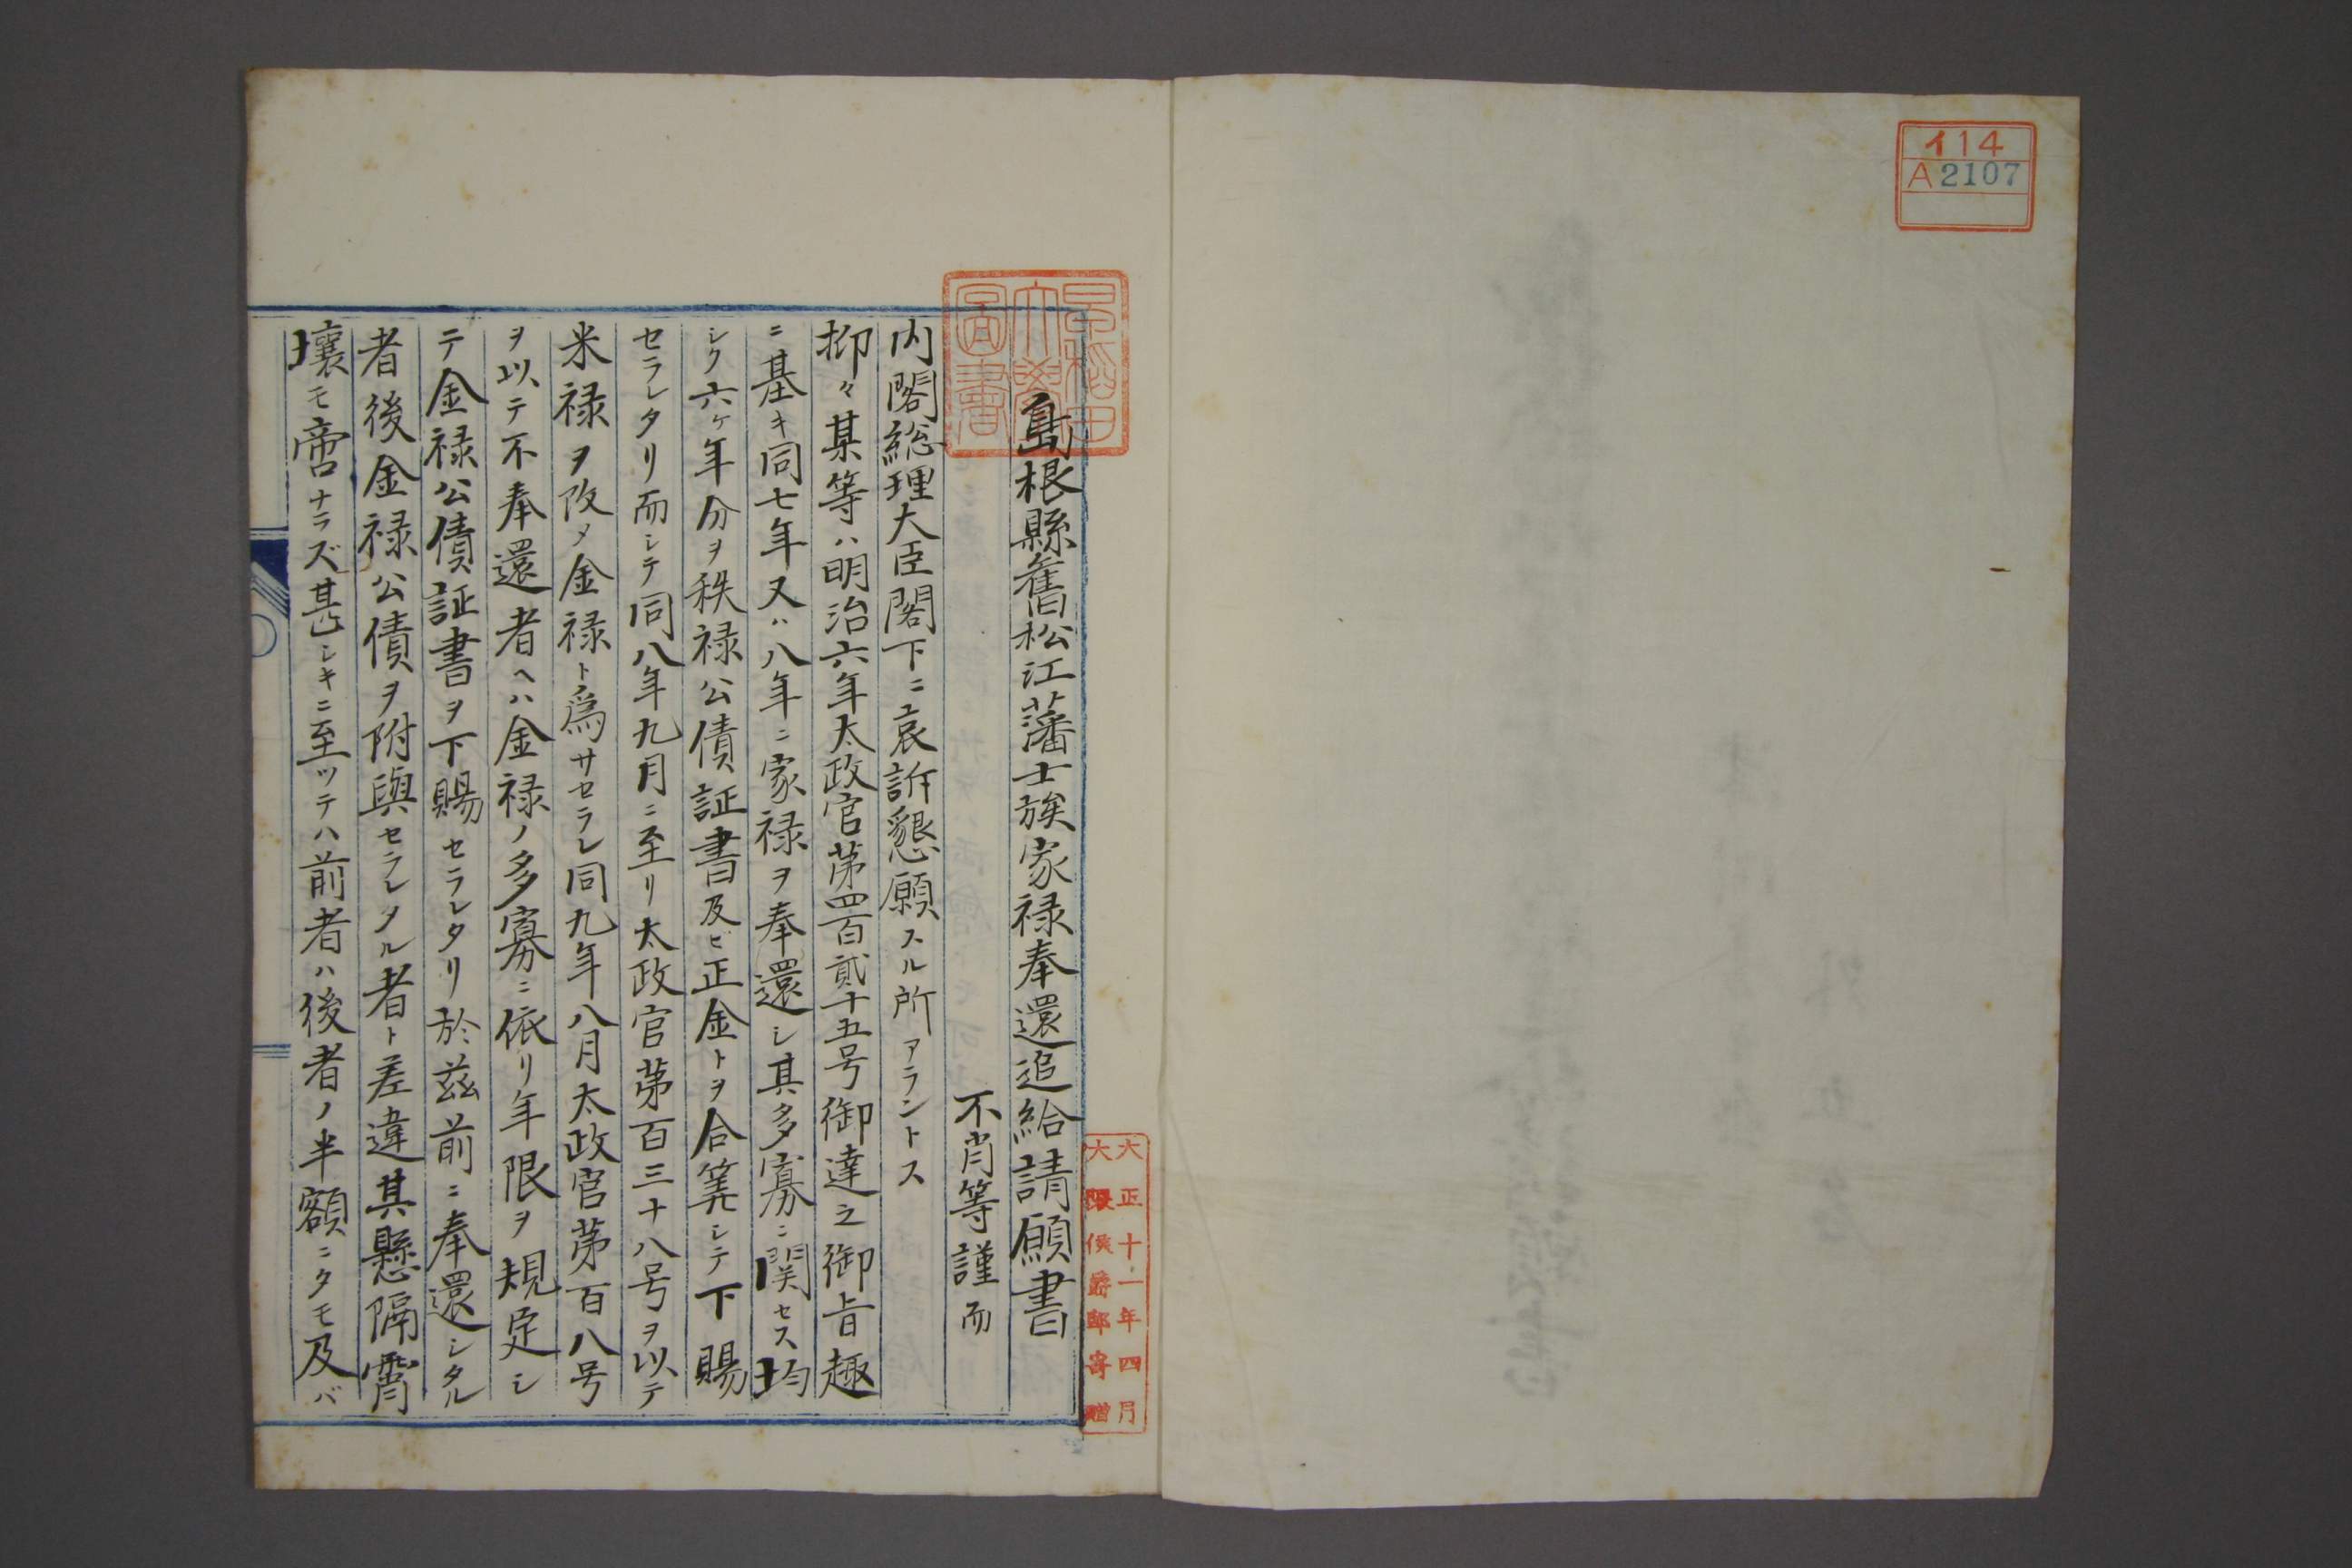 イ14
A2107
早稲田
大學
圖書
大正十一年四月
大隈侯爵邸寄贈
島根縣舊松江藩士族家禄奉還追給請願書
不肖等謹而
内閣総理大臣閣下ニ哀訴懇願スル所アラントス
抑々某等ハ明治六年太政官第四百貳十五号御達之御旨趣
ニ基キ同七年又ハ八年ニ家禄ヲ奉還シ其多寡ニ関セス均
シク六ヶ年分ヲ秩禄公債証書及ビ正金トヲ合筭シテ下賜
セラレタリ而シテ同八年九月ニ至リ太政官第百三十八号ヲ以テ
米禄ヲ改メ金禄ト爲サセラレ同九年八月太政官第百八号
ヲ以テ不奉還者ヘハ金禄ノ多寡ニ依リ年限ヲ規定シ
テ金禄公債証書ヲ下賜セラレタリ於茲前ニ奉還シタル
者後金禄公債ヲ附與セラレタル者ト差違其懸隔霄
壤モ啻ナラズ甚シキニ至ツテハ前者ハ後者ノ半額ニタモ及バ